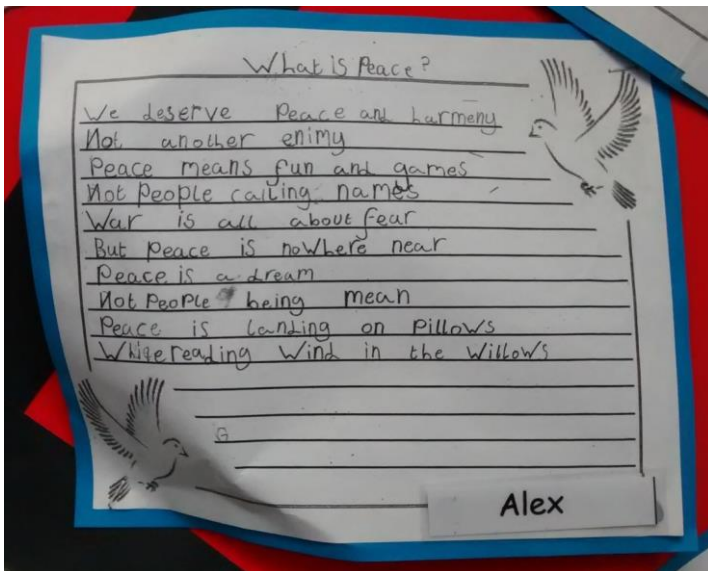 What is Peace?
We deserve Peace and harmeny
Not another enimy
Peace means fun and games
Not People calling names
War is all about fear
But peace is noWhere near
Peace is a dream
Not PeoPle being mean
Peace is landing on Pillows
While reading Wind in the Willows
G
Alex